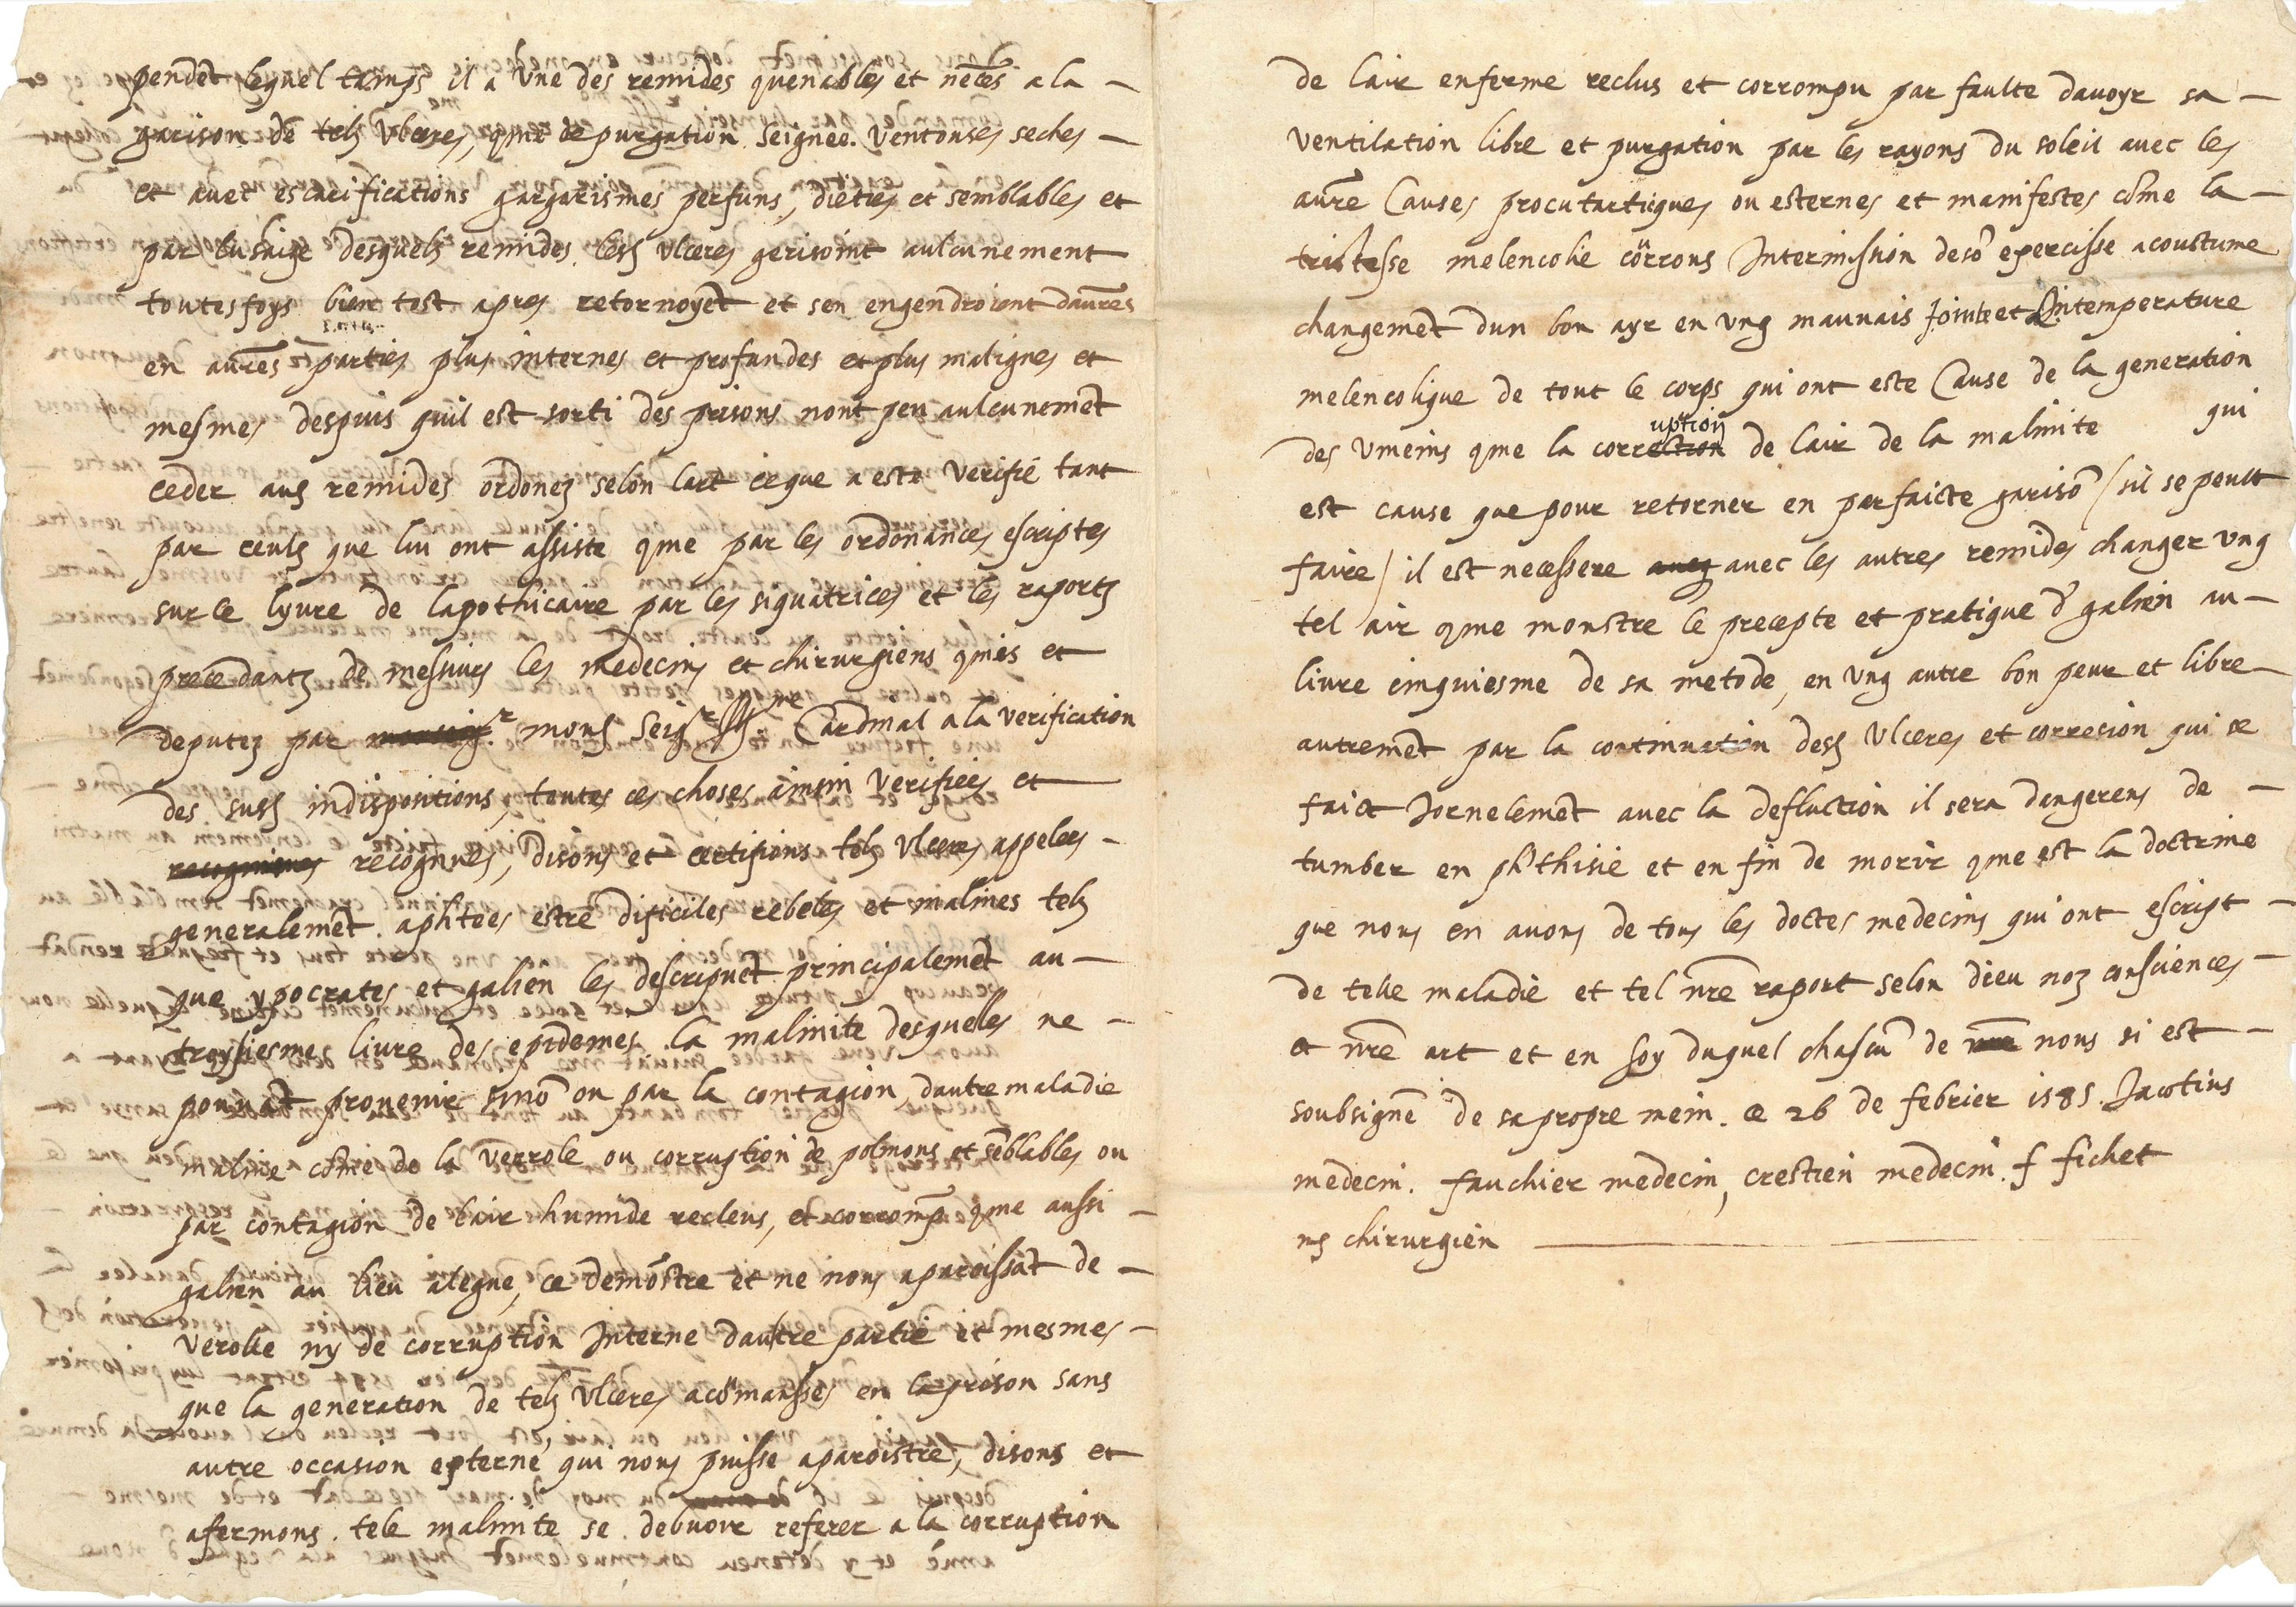 pendēt lequel tamps il a vne des remides quenables et neces̄ a la —
garison de telz vlceres, qme de purgation seignee. ventouses seches —
et auec escarifications gargarismes perfuns, dietes et semblables et
par lusaige desquelz remides lesz vlceres gerisoint aulcunement
toutesfoys bien tost apres retornoyēt et sen engendroient daūres
en aūres parties plus internes et profundes et plus malignes et
mesmes despuis quil est sorti des prisons nont peu aulcunemēt
ceder aus remides ordonez selon lart ce que a este verifié tant
par ceulx que lui ont assiste qme par les ordonances escriptes
sur le lyure de lapothicaire par les signatrices et les raportz
precedantz de messiurs les medecins et chirurgiens qmis et
deputez par monseigr monsz Seigr Illme Cardinal a la verification
des susz indispositions, toutes ces choses ainsin verifiees et
recognues recognues, disons et certifions telz vlceres appelees —
generalemēt aphtees estre dificiles rebeles et malines telz
que ypocrates et galien les descripuēt principalemēt au —
troysiesme livre des epidemes. la malinite desquelles ne —
pouuāt prouenir sinō ou par la contagion dautre maladie
maline cōme de la verrole ou corruption de polmons et sēblables ou
par contagion de lair humide recleus, et corromp qme aussi —
galien au lieu alegue, ce demōstre et ne nous aparoissāt de —
verolle ny de corruption interne dautre partie et mesmes —
que la generation de telz vlceres a cōmansse en la prison sans
autre occasion externe qui nous puisse aparoistre, disons et
afermons tele malinite se debuoir referer a la corruption
de lair enferme reclus et corrompu par faulte dauoyr sa —
ventilation libre et purgation par les rayons du soleil auec les
aūre Causes procutartiques ou esternes et manifestes cōme la —
tristesse melencolie cōrrous Intermission de sō exercisse acoustume
changemēt dun bon ayr en vng mauuais Jointe et Lintemperature
melencolique de tout le corps qui ont este Cause de la generation
des vmeins qme la correction uption de lair de la malinite qui
est cause que pour retorner en parfaicte garisō / sil se peult
faire / il est necessere auec auec les autres remides changer vng
tel air qme monstre le precepte et pratique d galien au —
livre cinquiesme de sa metode, en vng autre bon peur et libre —
autremēt par la continuation desz vlceres et corrosion qui se
faict Jornelemēt auec la defluction il sera dangereus de —
tumber en phthisie et en fin de morir qme est la doctrine
que nous en auons de tous les doctes medecins qui ont escript —
de telle maladie et tel nr̄e raport selon dieu noz consciences —
et nr̄e art et en foy duquel chascū de nr̄e nous si est —
soubsigne de sa propre mein. ce 26 de febrier 1585. Jacotius
medecin. fauchier medecin, crestien medecin. f fichet
ns chirurgien